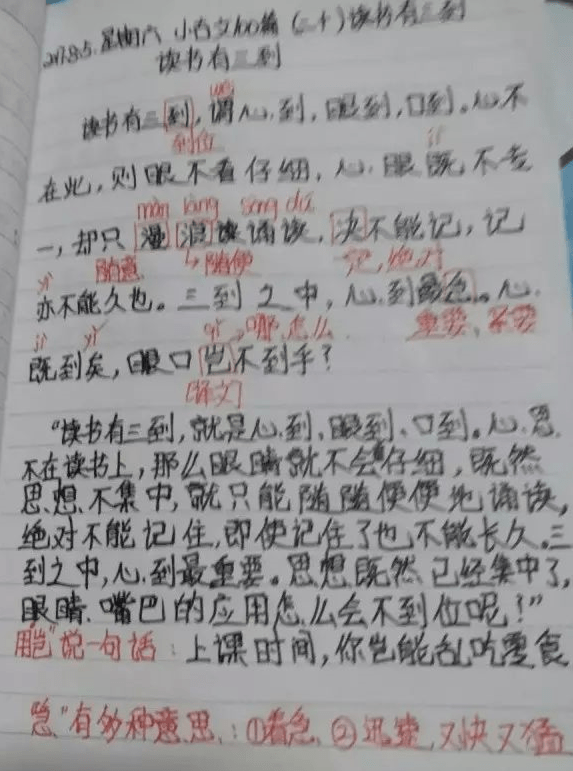 2017.8.5.星期六 小古文100篇(二十)读书有三到
读书有三到
wèi
读书有三到,谓心到,眼到,口到。心不
到位 jì
在此,则眼不看仔细,心眼既不专
màn làng sòng dú
一,却只漫浪诵读,决不能记,记
yì 随意 随便 绝对
亦不能久也。三到之中,心到最急。心
jì yǐ qǐ 哪,怎么 重要、紧要
既到矣,眼口岂不到乎?
[译文]
“读书有三到,就是心到、眼到、口到。心思
不在读书上,那么眼睛就不会仔细,既然
思想不集中,就只能随随便便地诵读,
绝对不能记住,即使记住了也不能长久。三
到之中,心到最重要。思想既然已经集中了,
眼睛、嘴巴的应用怎么会不到位呢!”
用“岂”说一句话:上课时间,你岂能乱吃零食
“急”有多种意思:①着急 ②迅速,又快又猛